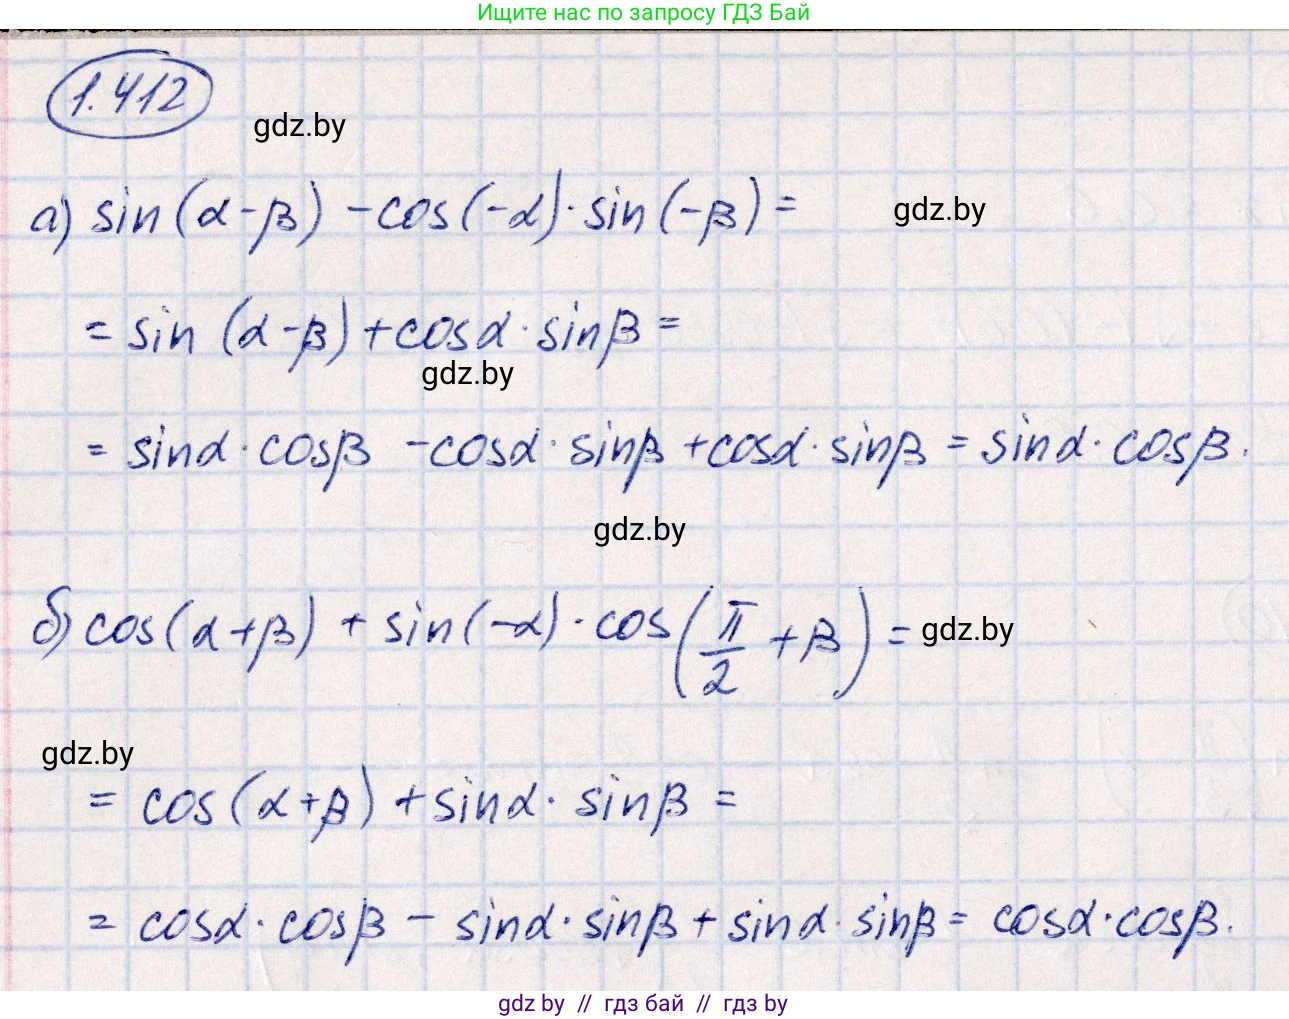 Ищите нас по запросу ГДЗ Бай
1.412
gdz.by
а) sin(α-β) -cos(-α)·sin(-β)=
gdz.by
= sin (α-β)+cosα·sinβ=
gdz.by
= sinα·cosβ -cosα·sinβ +cosα·sinβ = sinα·cosβ.
gdz.by
б) cos(α+β) + sin(-α)·cos(π/2 +β) =
gdz.by
gdz.by
= cos(α+β) +sinα·sinβ =
= cosα·cosβ - sinα·sinβ + sinα·sinβ = cosα·cosβ.
gdz.by // гдз бай // гдз by